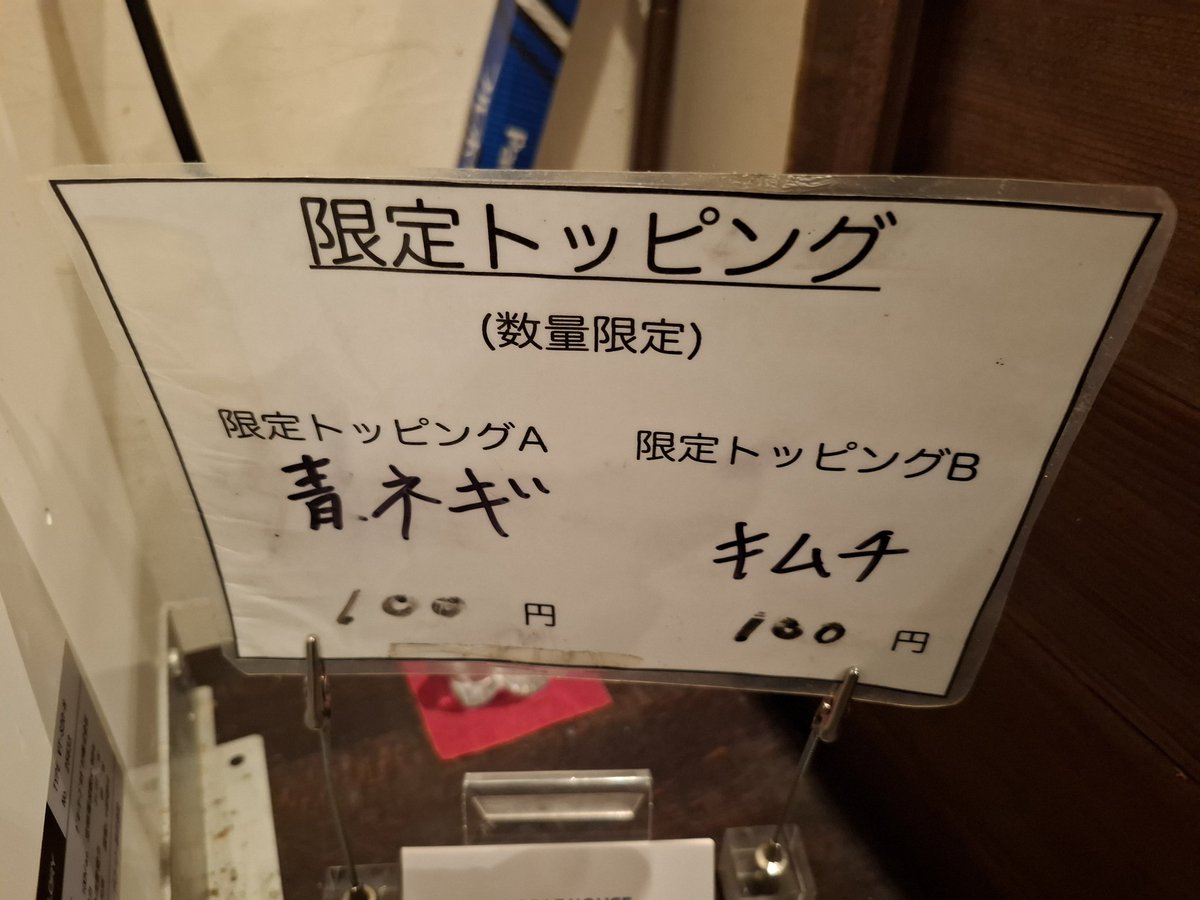 限定トッピング
(数量限定)
限定トッピングA
青ネギ
100 円
限定トッピングB
キムチ
円